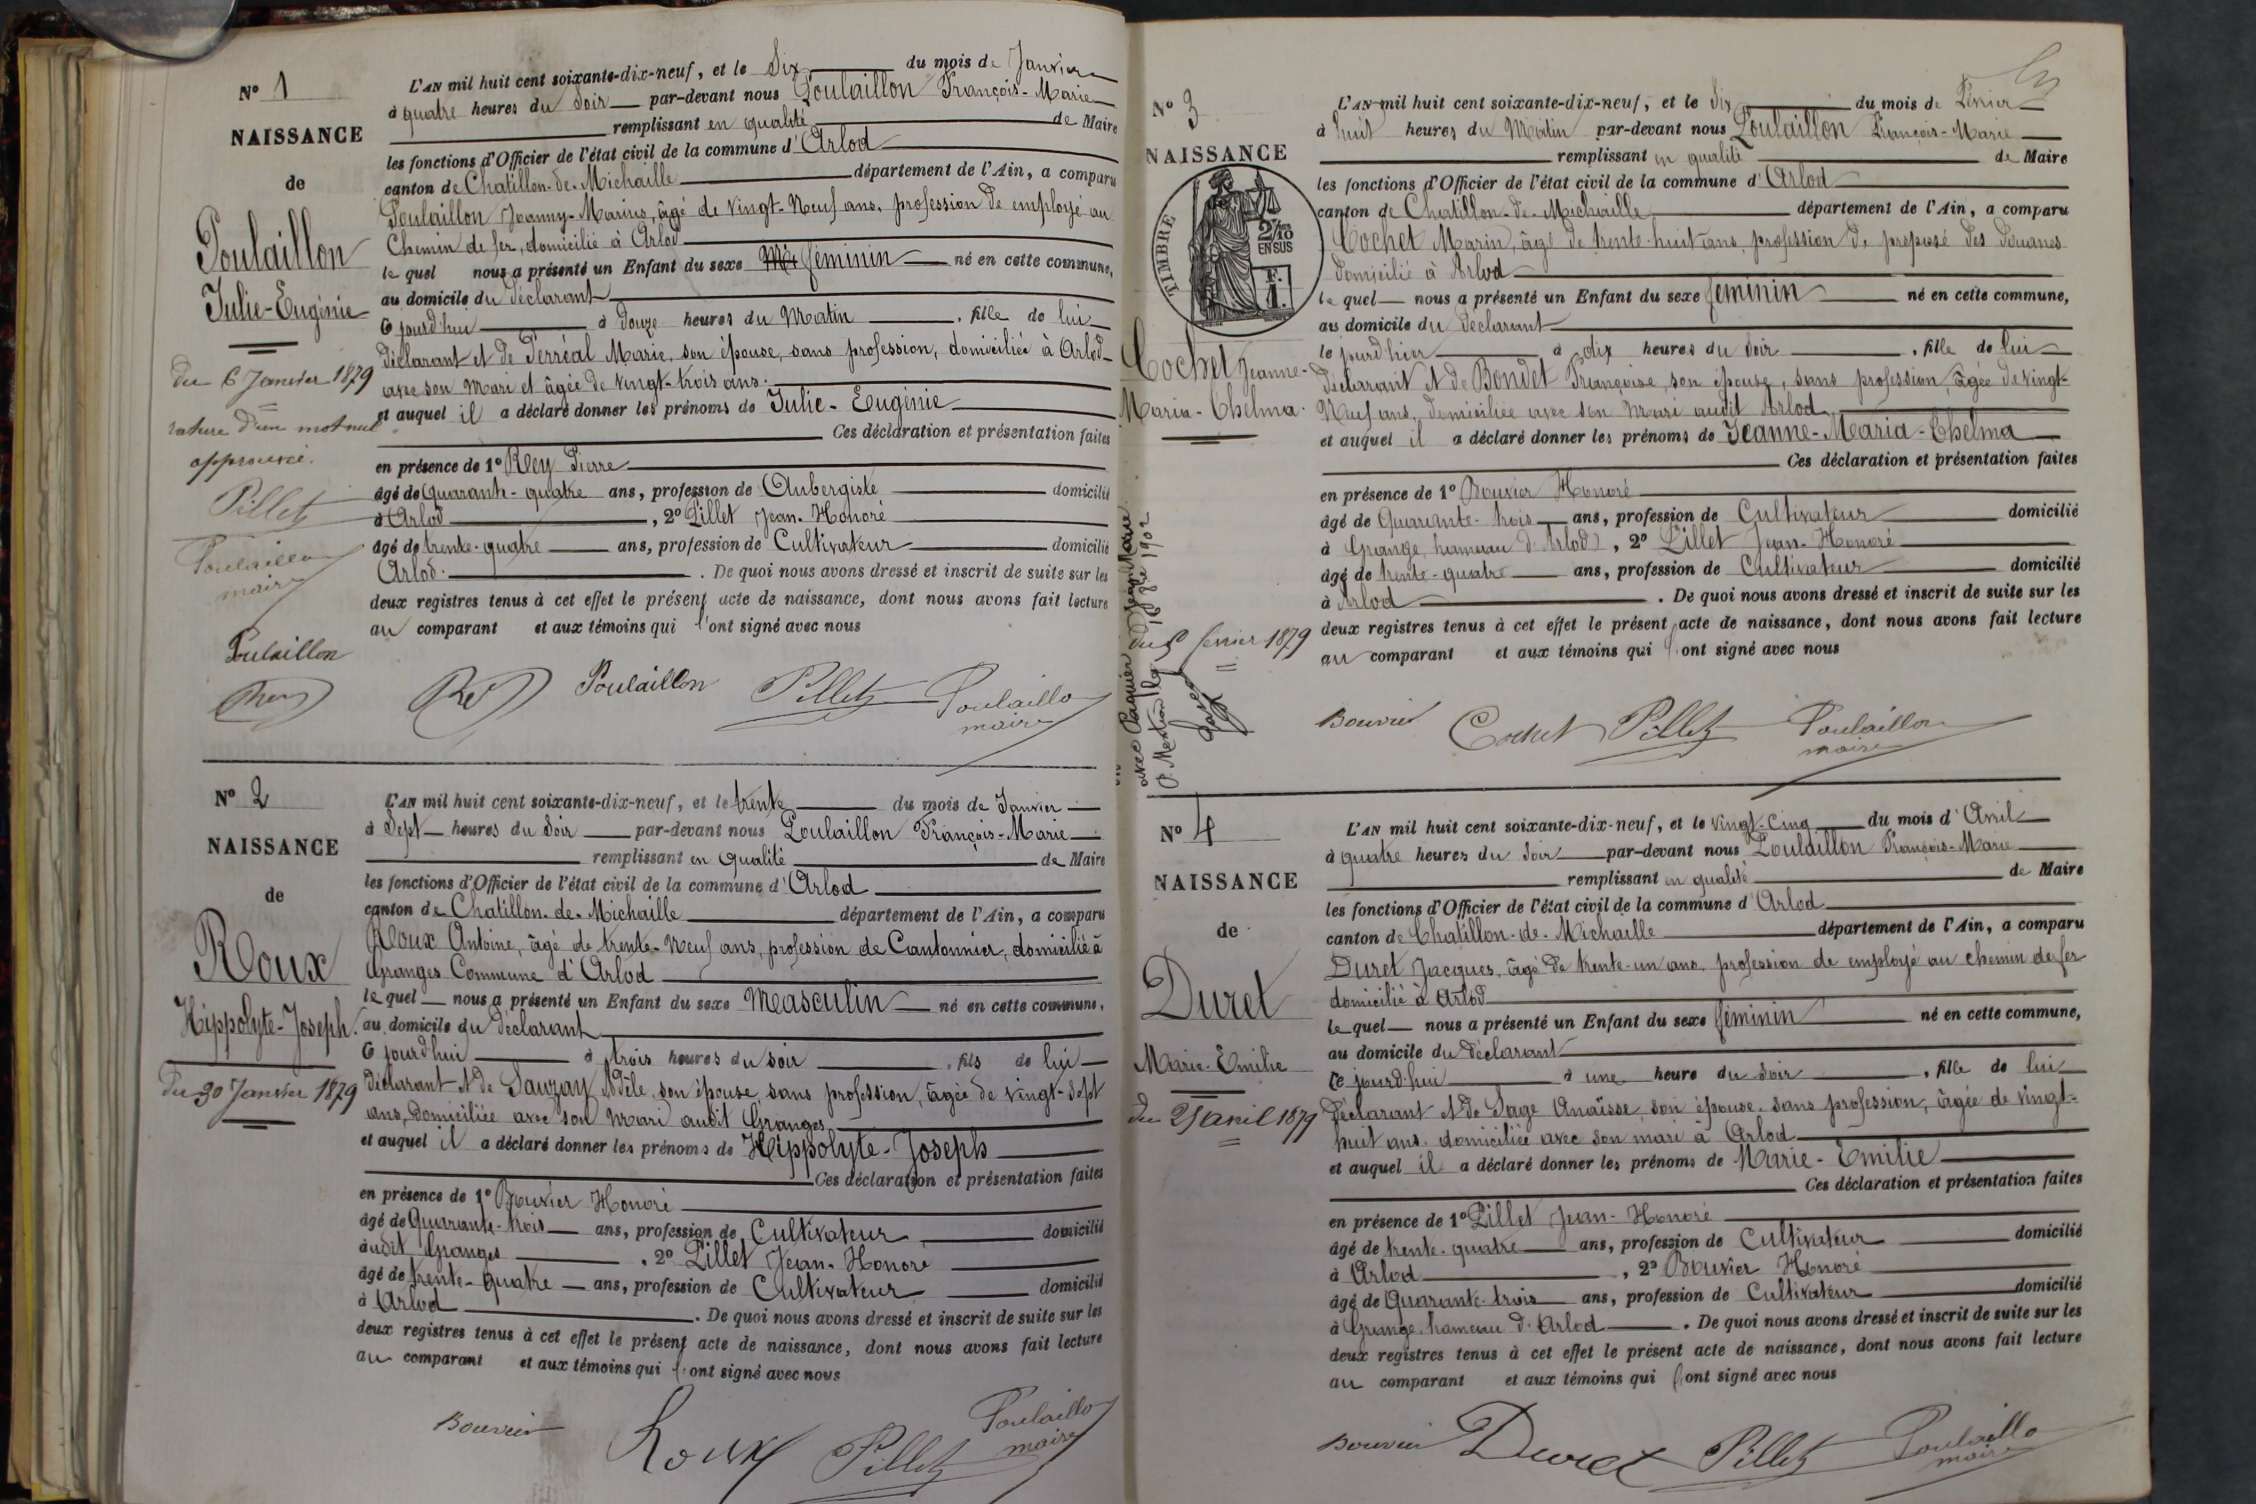 N° 1
NAISSANCE
de
Poulaillon
Julie-Eugénie
du 6 Janvier 1879
rature d'un mot nul
approuvée.
Pillet
Poulaillon
maire
Poulaillon
Rey
L'AN mil huit cent soixante-dix-neuf, et le Six du mois de Janvier
à quatre heures du Soir par-devant nous Poulaillon François-Marie
remplissant en qualité de Maire
les fonctions d'Officier de l'état civil de la commune d'Arlod
canton de Chatillon-de-Michaille département de l'Ain, a comparu
Poulaillon Joanny-Marius, âgé de Vingt-Neuf ans, profession de employé au
Chemin de fer, domicilié à Arlod
le quel nous a présenté un Enfant du sexe féminin né en cette commune,
au domicile du Déclarant
Ce jourd'hui à douze heures du Matin, fille de lui
déclarant et de Perréal Marie, son épouse, sans profession, domiciliée à Arlod
avec son Mari et âgée de Vingt-trois ans.
et auquel il a déclaré donner les prénoms de Julie-Eugénie
Ces déclaration et présentation faites
en présence de 1° Rey Pierre
âgé de Quarante-quatre ans, profession de Aubergiste domicilié
à Arlod, 2° Pillet Jean-Honoré
âgé de trente-quatre ans, profession de Cultivateur domicilié
Arlod. De quoi nous avons dressé et inscrit de suite sur les
deux registres tenus à cet effet le présent acte de naissance, dont nous avons fait lecture
au comparant et aux témoins qui l'ont signé avec nous
Rey Poulaillon Pillet Poulaillon
maire
N° 2
NAISSANCE
de
Roux
Hippolyte-Joseph.
Du 30 Janvier 1879
L'AN mil huit cent soixante-dix-neuf, et le trente du mois de Janvier
à Sept heures du Soir par-devant nous Poulaillon François-Marie
remplissant en Qualité de Maire
les fonctions d'Officier de l'état civil de la commune d'Arlod
canton de Chatillon-de-Michaille département de l'Ain, a comparu
Roux Antoine, âgé de trente-Neuf ans, profession de Cantonnier, domicilié à
Granges Commune d'Arlod
le quel nous a présenté un Enfant du sexe Masculin né en cette commune,
au domicile du Déclarant
Ce jourd'hui à trois heures du soir, fils de lui
déclarant et de Sauzay Adèle, son épouse, sans profession, âgée de vingt-sept
ans, Domiciliée avec son Mari audit Granges
et auquel il a déclaré donner les prénoms de Hippolyte-Joseph
Ces déclaration et présentation faites
en présence de 1° Bouvier Honoré
âgé de Quarante-trois ans, profession de Cultivateur domicilié
audit Granges, 2° Pillet Jean-Honoré
âgé de trente-quatre ans, profession de Cultivateur domicilié
à Arlod. De quoi nous avons dressé et inscrit de suite sur les
deux registres tenus à cet effet le présent acte de naissance, dont nous avons fait lecture
au comparant et aux témoins qui l'ont signé avec nous
Bouvier Roux Pillet Poulaillon
maire
N° 3
NAISSANCE
TIMBRE
2/10
EN SUS
F.
1.
Cochet Jeanne-
Maria-Thelma.
du 6 février 1879
avec Paquier Jean Marie
L'AN mil huit cent soixante-dix-neuf, et le Six du mois de Février
à huit heures du Matin par-devant nous Poulaillon François-Marie
remplissant en qualité de Maire
les fonctions d'Officier de l'état civil de la commune d'Arlod
canton de Chatillon-de-Michaille département de l'Ain, a comparu
Cochet Marin, âgé de trente-huit ans, profession de préposé des Douanes
domicilié à Arlod
le quel nous a présenté un Enfant du sexe féminin né en cette commune,
au domicile du Déclarant
le jourd'hier à dix heures du Soir, fille de lui
déclarant et de Bondet Françoise, son épouse, sans profession, âgée de vingt-
Neuf ans, Domiciliée avec son Mari audit Arlod
et auquel il a déclaré donner les prénoms de Jeanne-Maria-Thelma
Ces déclaration et présentation faites
en présence de 1° Bouvier Honoré
âgé de Quarante-trois ans, profession de Cultivateur domicilié
à Grange, hameau d'Arlod, 2° Pillet Jean-Honoré
âgé de trente-quatre ans, profession de Cultivateur domicilié
à Arlod. De quoi nous avons dressé et inscrit de suite sur les
deux registres tenus à cet effet le présent acte de naissance, dont nous avons fait lecture
au comparant et aux témoins qui l'ont signé avec nous
Bouvier Cochet Pillet Poulaillon
maire
N° 4
NAISSANCE
de
Duret
Marie-Emilie
du 25 avril 1879
L'AN mil huit cent soixante-dix-neuf, et le vingt-cinq du mois d'Avril
à quatre heures du Soir par-devant nous Poulaillon François-Marie
remplissant en qualité de Maire
les fonctions d'Officier de l'état civil de la commune d'Arlod
canton de Chatillon-de-Michaille département de l'Ain, a comparu
Duret Jacques, âgé de trente-un ans, profession de employé au chemin de fer
domicilié à Arlod
le quel nous a présenté un Enfant du sexe féminin né en cette commune,
au domicile du Déclarant
Ce jourd'hui à une heure du Soir, fille de lui
déclarant et de Sage Anaïsse, son épouse, sans profession, âgée de vingt-
huit ans, domiciliée avec son mari à Arlod
et auquel il a déclaré donner les prénoms de Marie-Emilie
Ces déclaration et présentation faites
en présence de 1° Pillet Jean-Honoré
âgé de trente-quatre ans, profession de Cultivateur domicilié
à Arlod, 2° Bouvier Honoré
âgé de Quarante-trois ans, profession de Cultivateur domicilié
à Grange, hameau d'Arlod. De quoi nous avons dressé et inscrit de suite sur les
deux registres tenus à cet effet le présent acte de naissance, dont nous avons fait lecture
au comparant et aux témoins qui l'ont signé avec nous
Bouvier Duret Pillet Poulaillon
maire